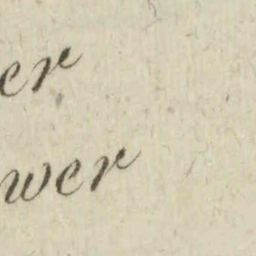 er
wer